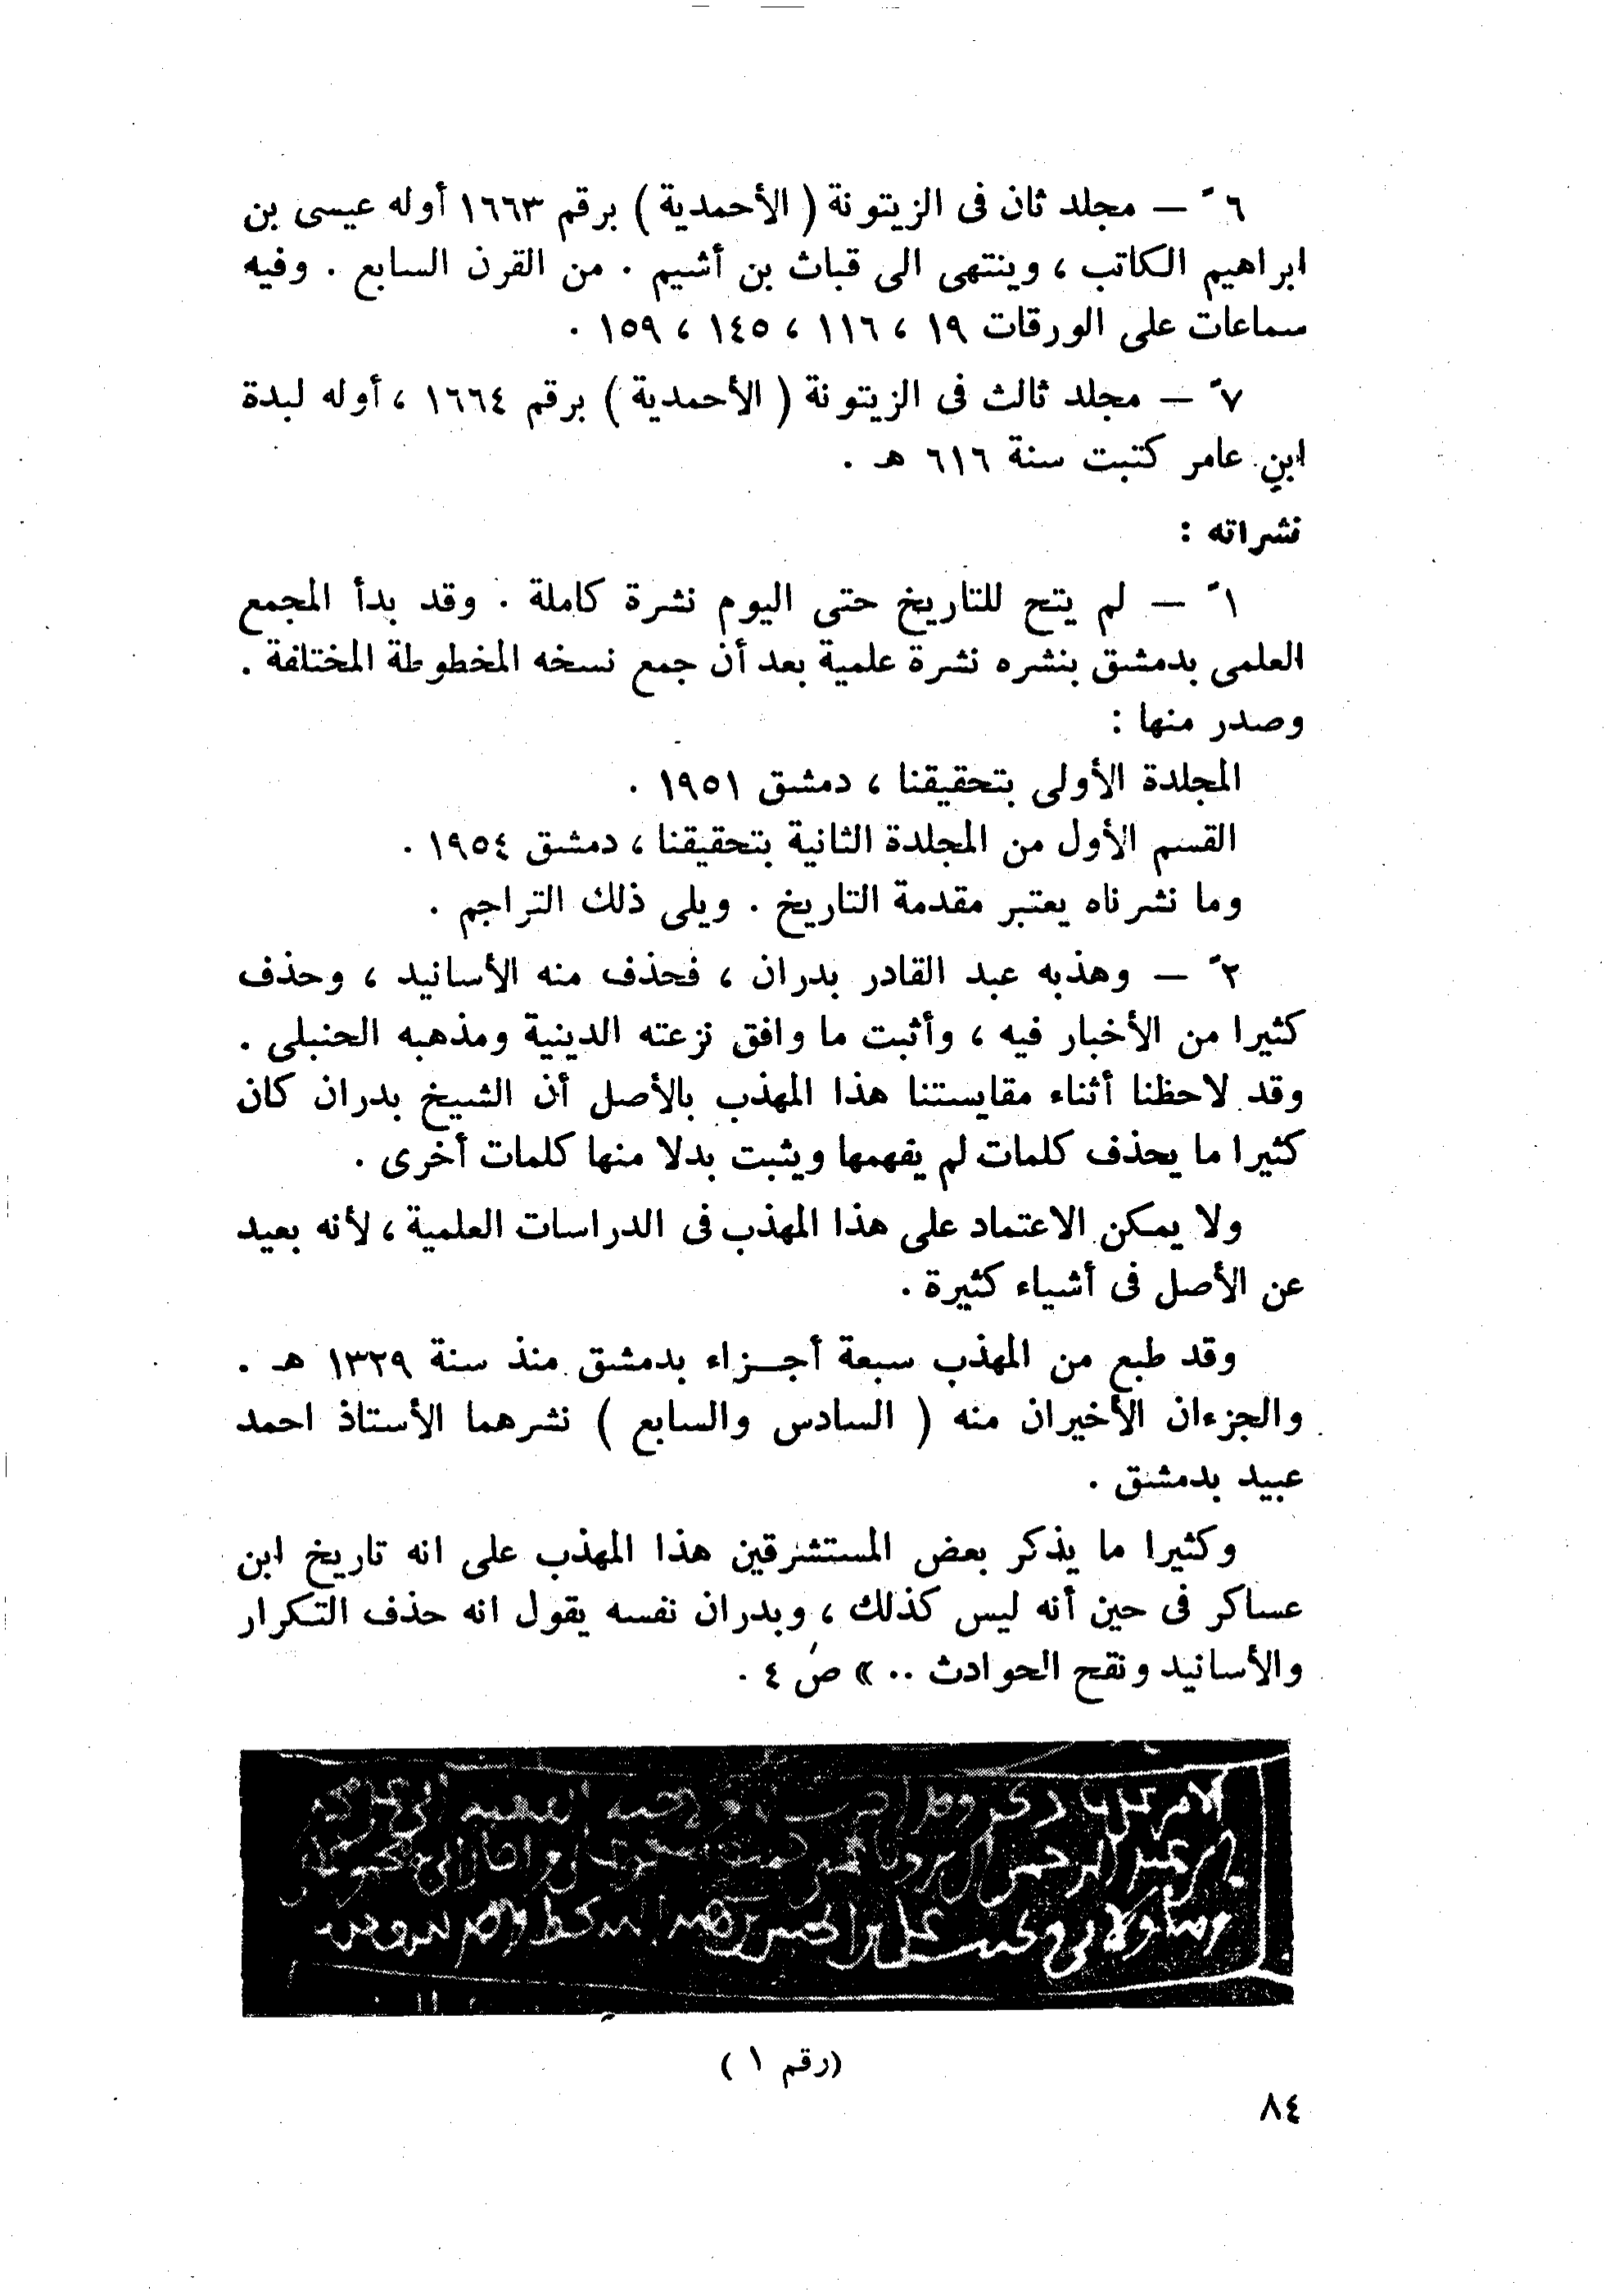 ٦ً — مجلد ثان فى الزيتونة ( الأحمدية ) برقم ١٦٦٣ أوله عيسى بن
ابراهيم الكاتب ، وينتهى الى قباث بن أشيم . من القرن السابع . وفيه
سماعات على الورقات ١٩ ، ١١٦ ، ١٤٥ ، ١٥٩ .
٧ً — مجلد ثالث فى الزيتونة ( الأحمدية ) برقم ١٦٦٤ ، أوله لبدة
ابن عامر كتبت سنة ٦١٦ هـ .
نشراته :
١ً — لم يتح للتاريخ حتى اليوم نشرة كاملة . وقد بدأ المجمع
العلمى بدمشق بنشره نشرة علمية بعد أن جمع نسخه المخطوطة المختلفة .
وصدر منها :
المجلدة الأولى بتحقيقنا ، دمشق ١٩٥١ .
القسم الأول من المجلدة الثانية بتحقيقنا ، دمشق ١٩٥٤ .
وما نشرناه يعتبر مقدمة التاريخ . ويلى ذلك التراجم .
٢ً — وهذبه عبد القادر بدران ، فحذف منه الأسانيد ، وحذف
كثيرا من الأخبار فيه ، وأثبت ما وافق نزعته الدينية ومذهبه الحنبلى .
وقد لاحظنا أثناء مقايستنا هذا المهذب بالأصل أن الشيخ بدران كان
كثيرا ما يحذف كلمات لم يفهمها ويثبت بدلا منها كلمات أخرى .
ولا يمكن الاعتماد على هذا المهذب فى الدراسات العلمية ، لأنه بعيد
عن الأصل فى أشياء كثيرة .
وقد طبع من المهذب سبعة أجـــزاء بدمشق منذ سنة ١٣٢٩ هـ .
والجزءان الأخيران منه ( السادس والسابع ) نشرهما الأستاذ احمد
عبيد بدمشق .
وكثيرا ما يذكر بعض المستشرقين هذا المهذب على انه تاريخ ابن
عساكر فى حين أنه ليس كذلك ، وبدران نفسه يقول انه حذف التكرار
والأسانيد ونقح الحوادث .. » ص ٤ .
(رقم ١ )
٨٤